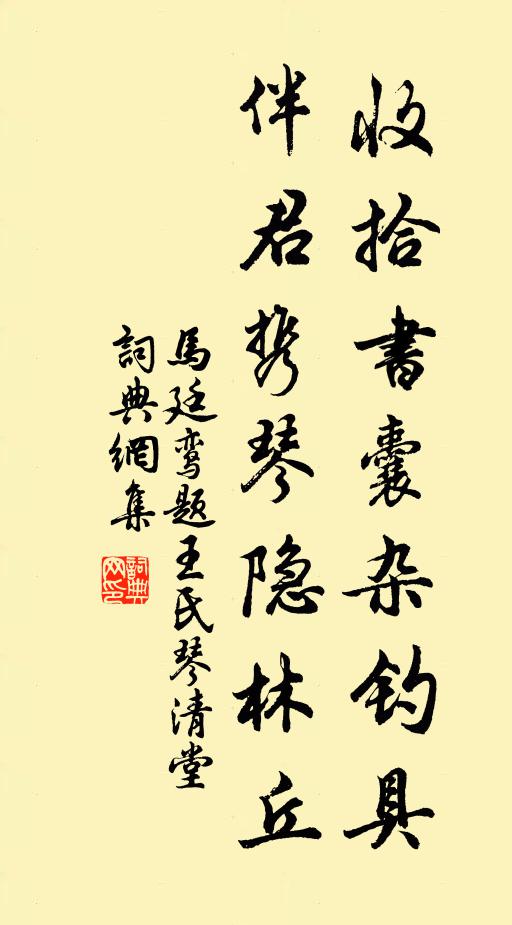 收拾书囊杂钓具
伴君携琴隐林丘
馬廷鸾题王氏琴清堂
詞典網集
詞典网印